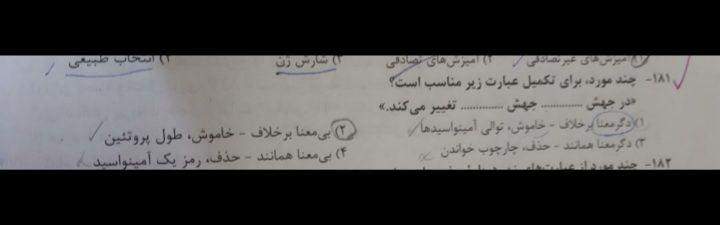 ۱) آمیزش‌های غیرتصادفی ۲) آمیزش‌های تصادفی ۳) شارش ژن ۴) انتخاب طبیعی
۱۸۱- چند مورد، برای تکمیل عبارت زیر مناسب است؟
«در جهش ............. جهش ............. تغییر می‌کند.»
۱) دگرمعنا برخلاف - خاموش، توالی آمینواسیدها ۲) بی‌معنا برخلاف - خاموش، طول پروتئین
۳) دگرمعنا همانند - حذف، چارچوب خواندن ۴) بی‌معنا همانند - حذف، رمز یک آمینواسید
۱۸۲- چند مورد از عبارت‌های